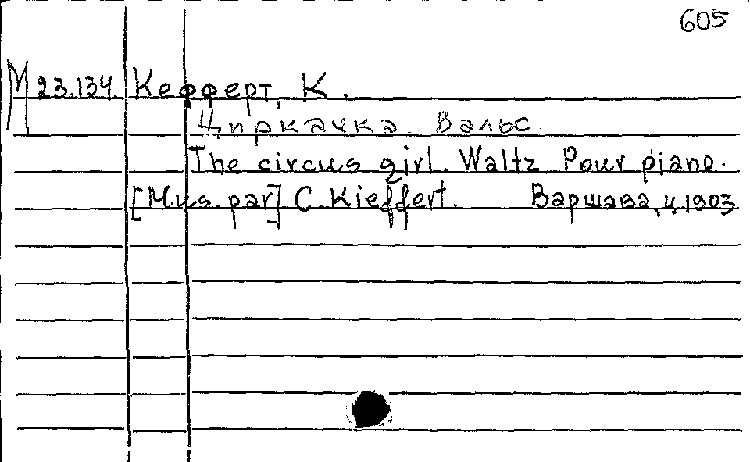 605
М 23.134. Кефферт, К.
Циркачка. Вальс.
The circus girl. Waltz Pour piano.
[Mus. par] C. Kieffert. Варшава, ц. 1903